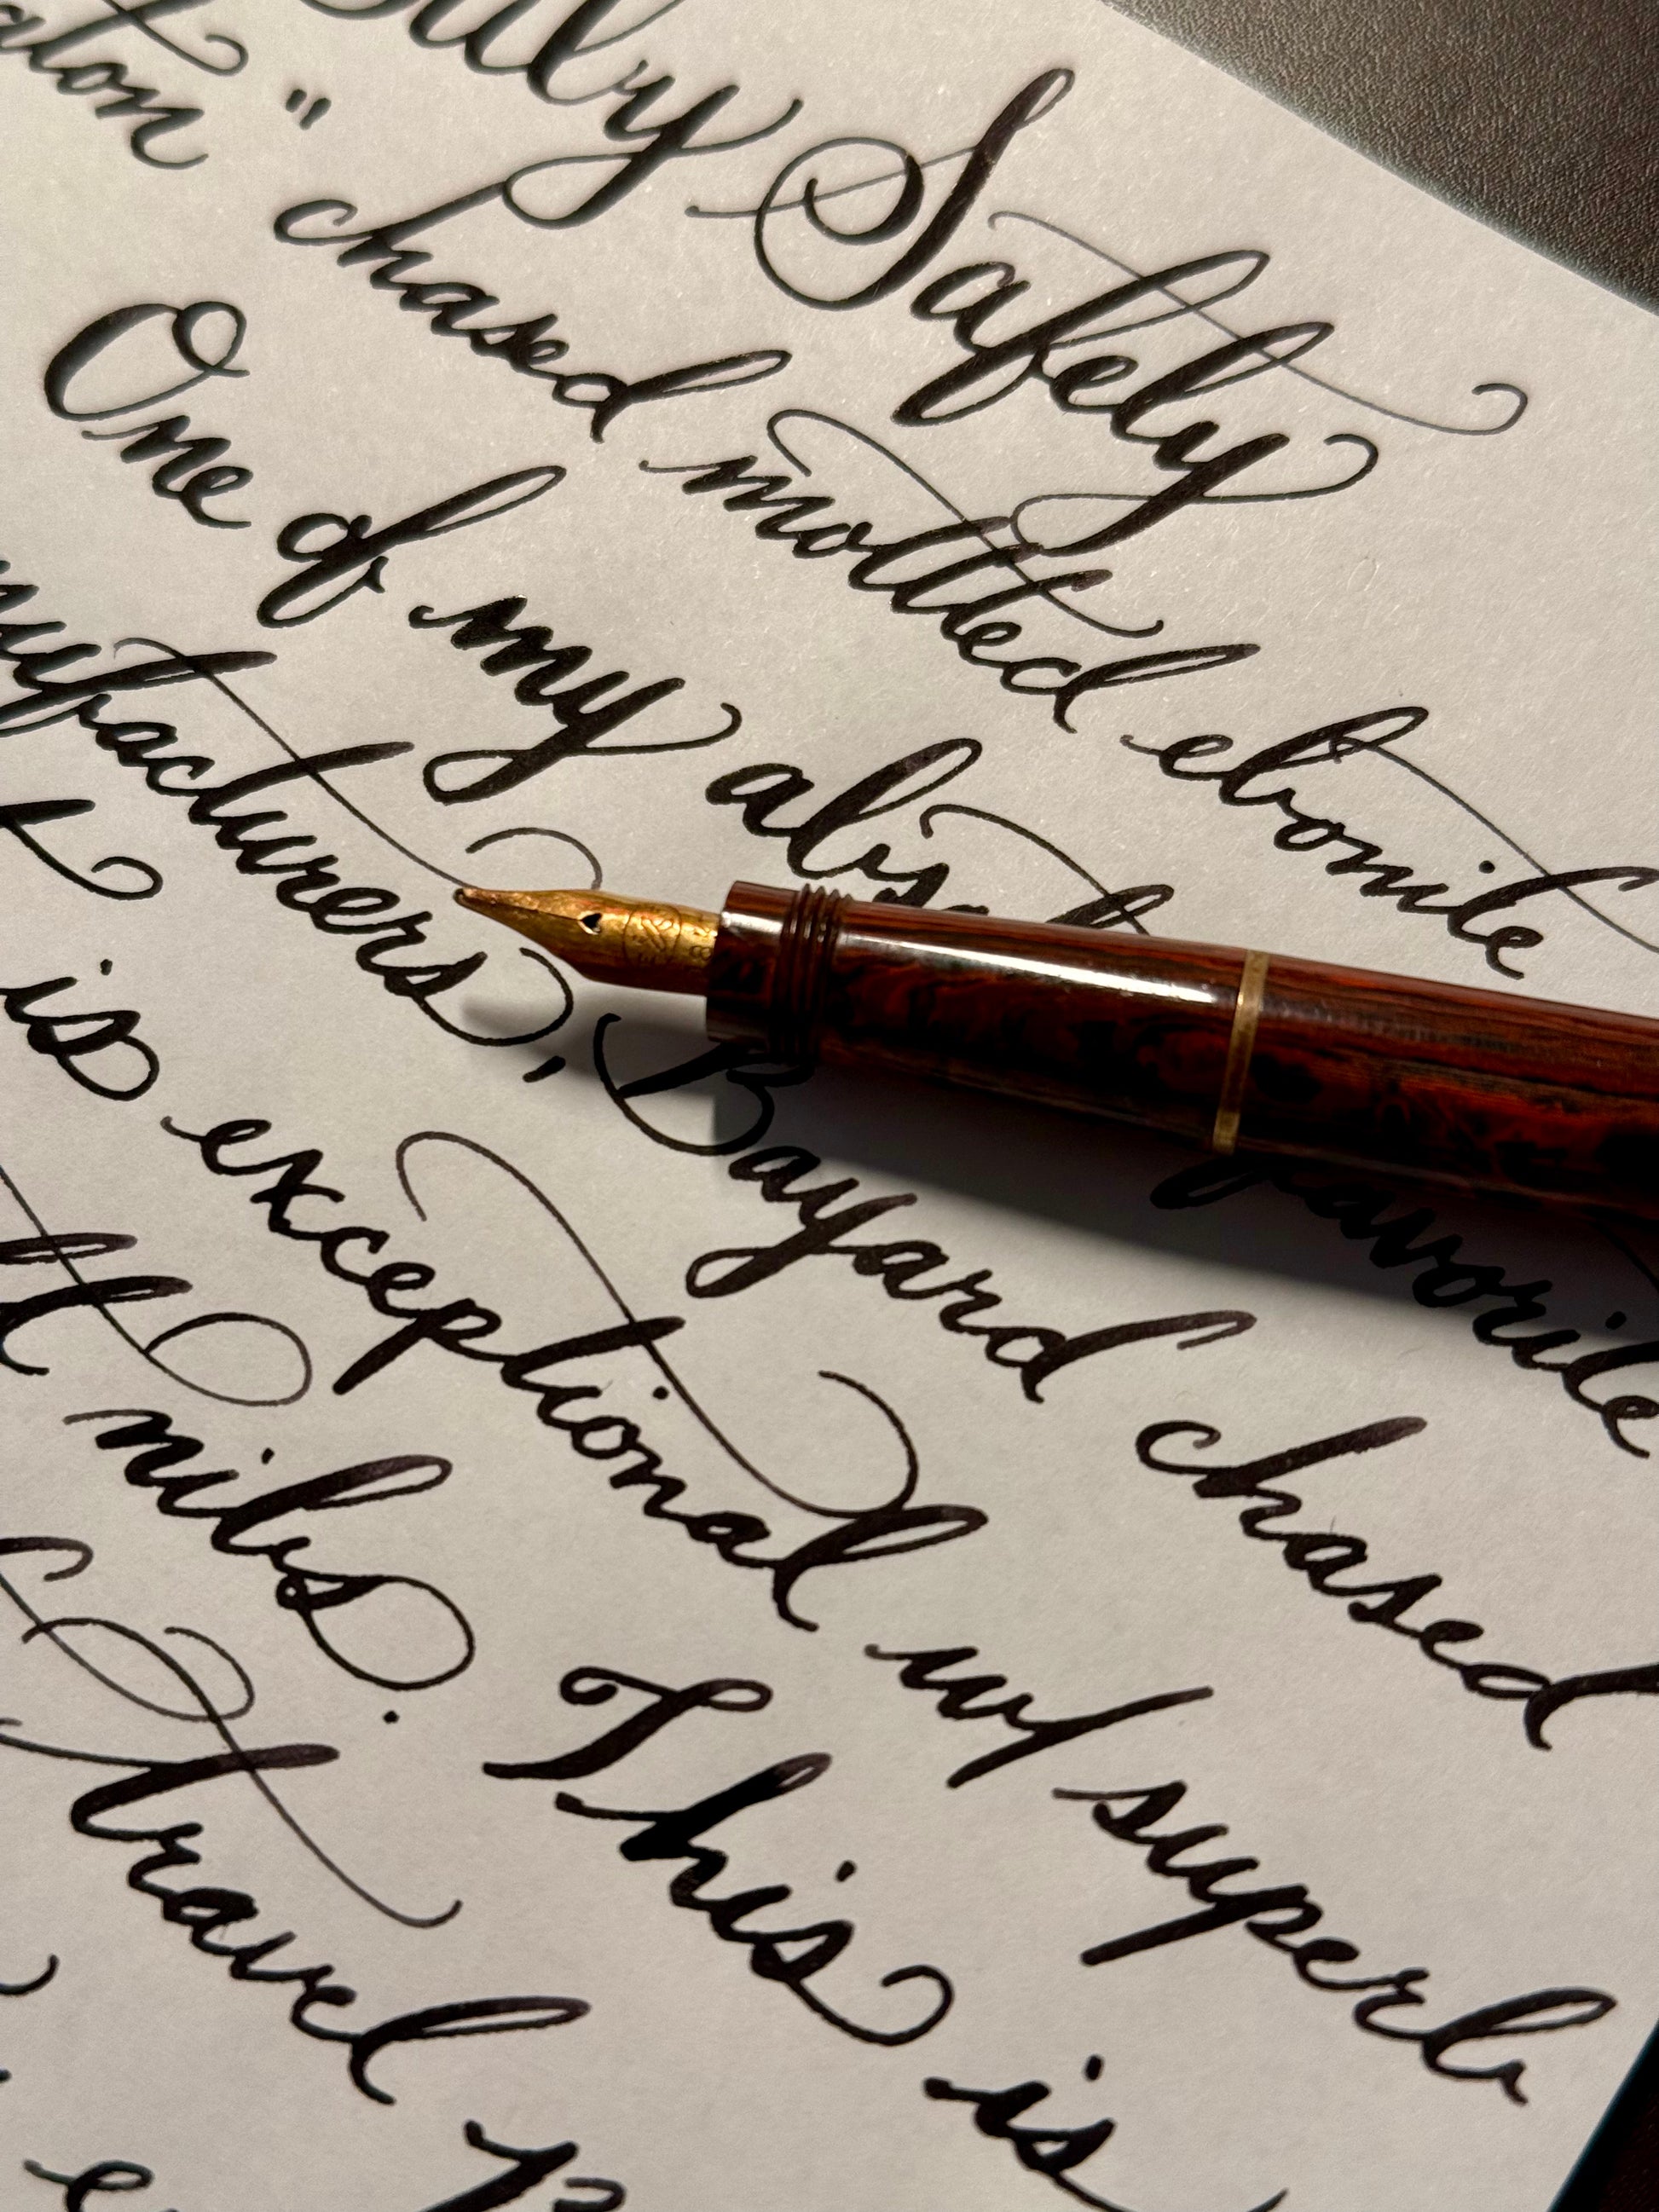 Safety
" chased mottled ebonite
One of my favorite
nufacturers, Bayard chased
is exceptional w/ superb
nibs. This is
travel